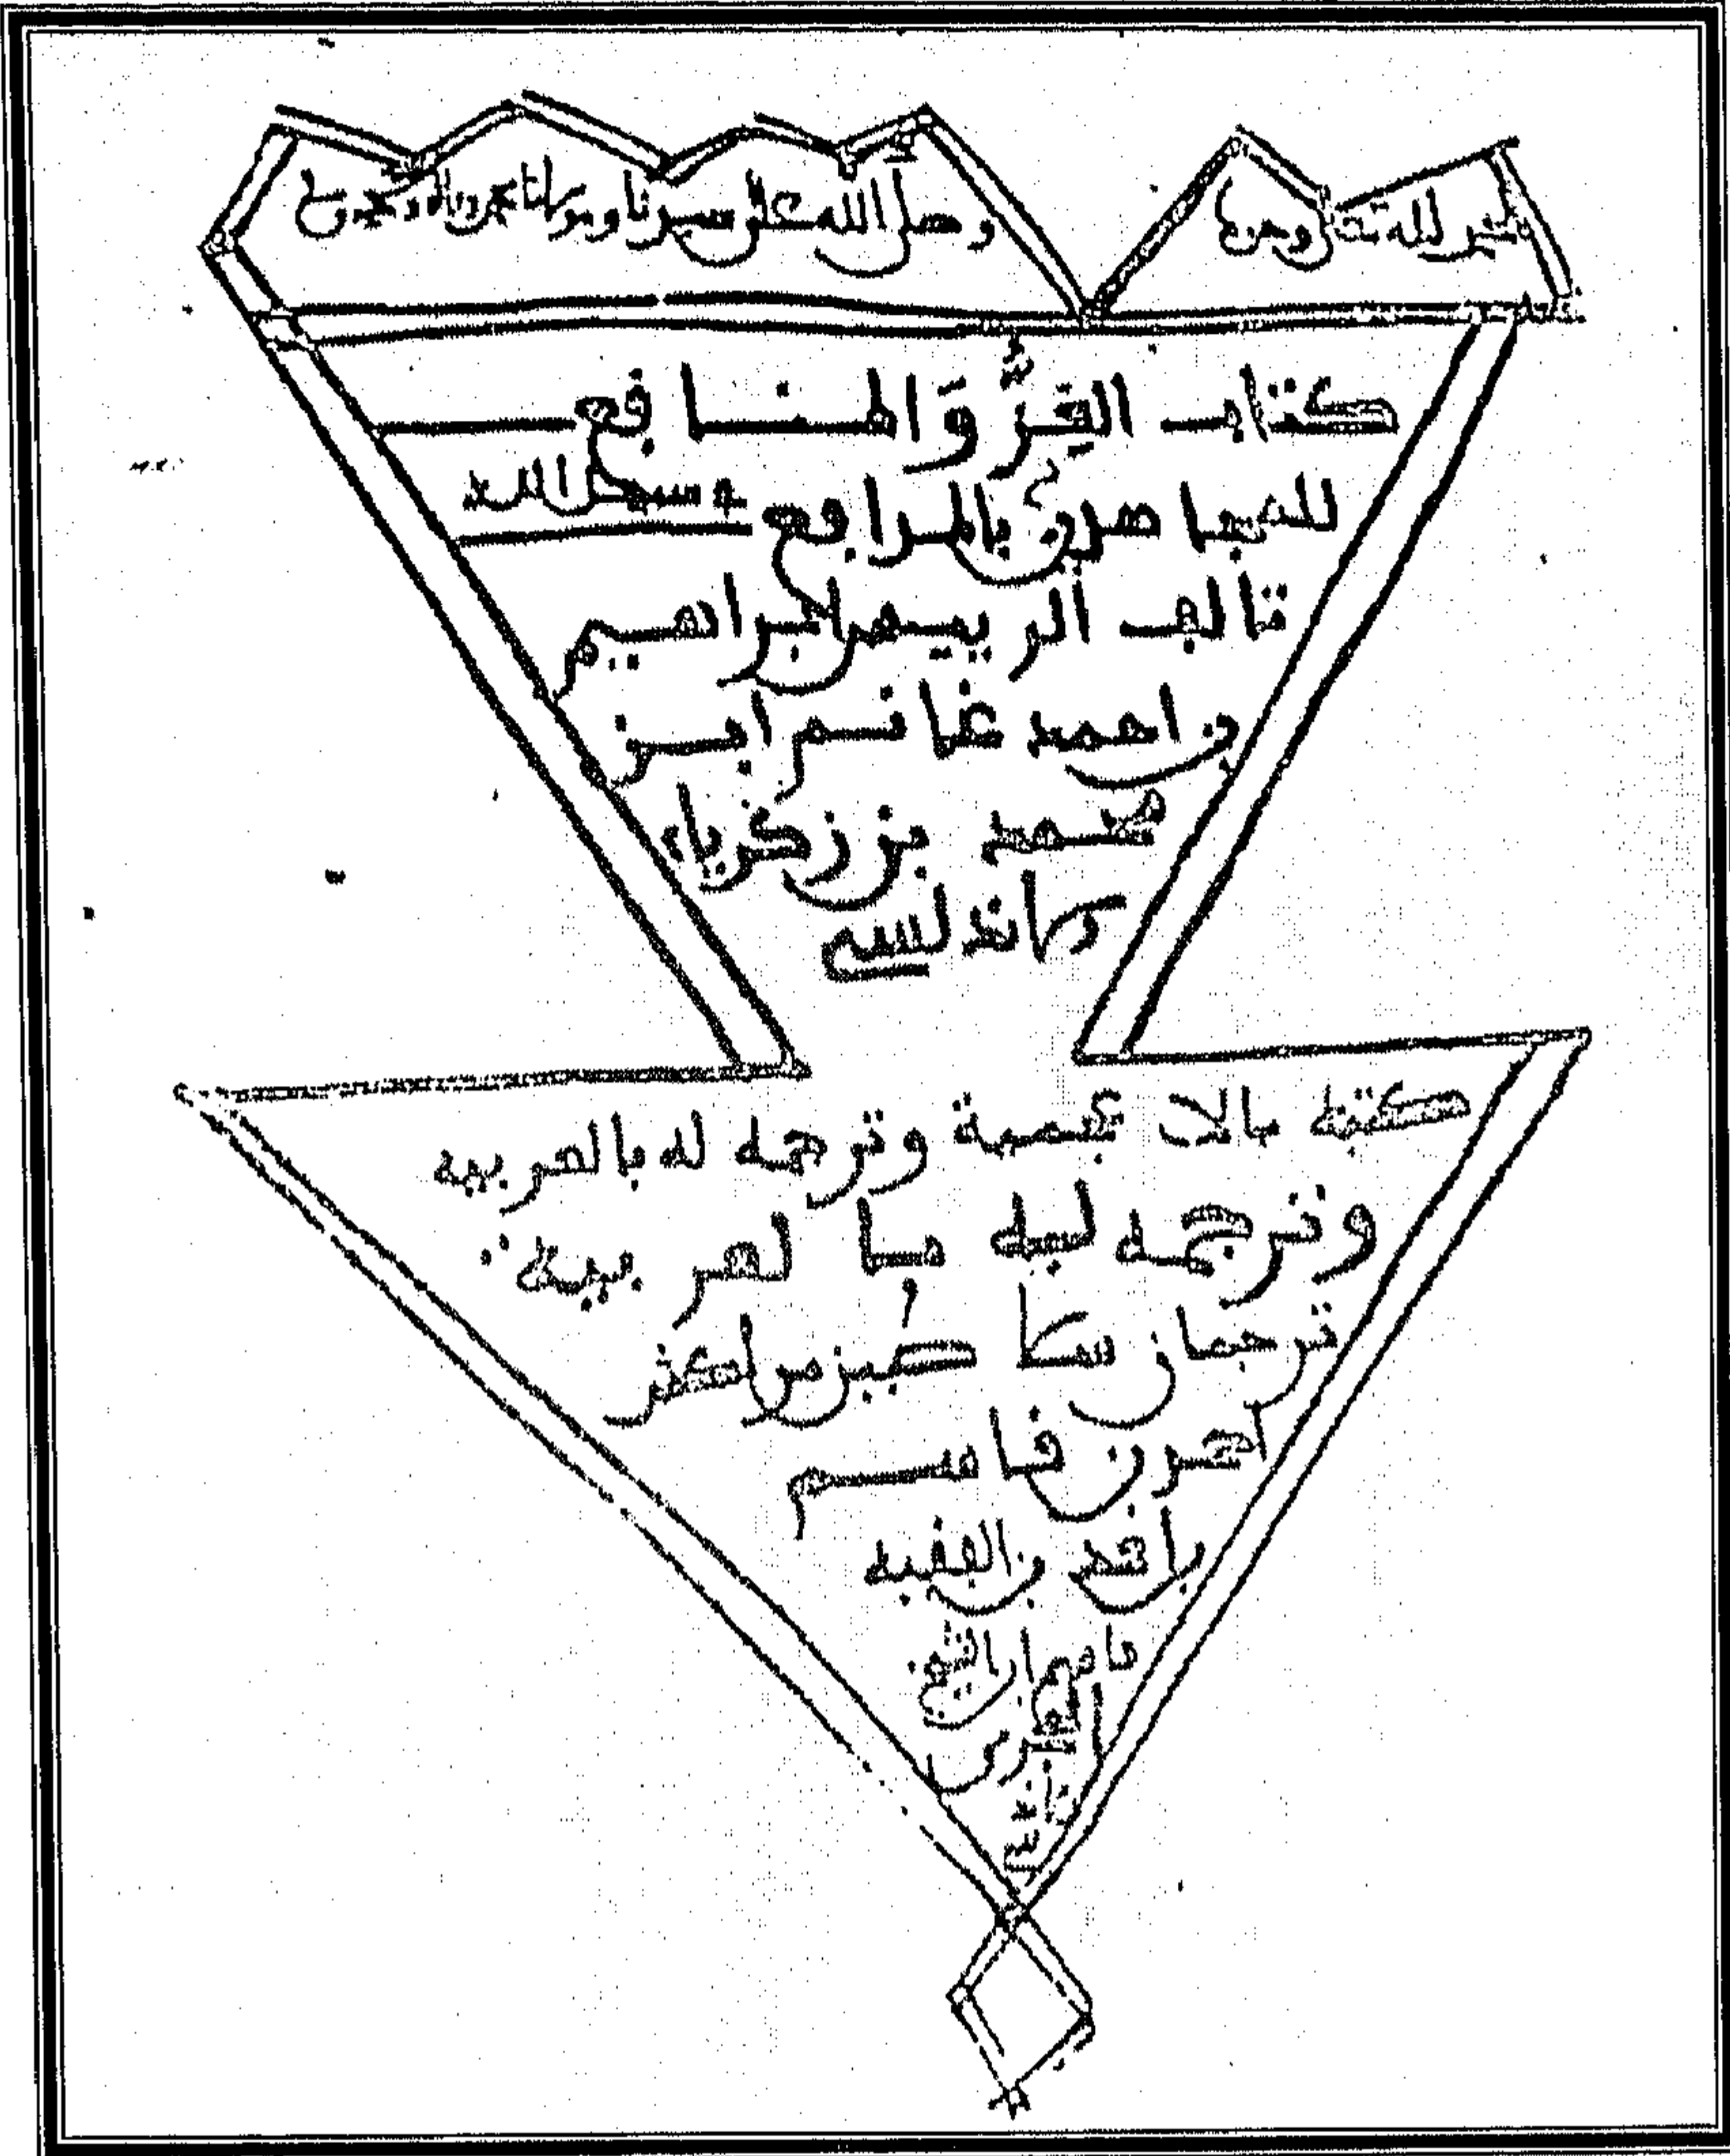 الحمد لله تعالى وحده
وصلى الله على سيدنا ومولانا محمد وءاله وصحبه وسلم
كتاب العز والمنافع
للمجاهدين بالمدافع فى سبيل الله
تالف الرييس ابراهيم
بن احمد غانم ابن
محمد بن زكرياء
الاندلسي
كتبه بالاعجمية وترجمه له بالعربيه
وترجمه ليه بالعربية
ترجمان سلاطين مراكش
احمد بن قاسم
بن احمد بن الفقيه
قاسم ابن الشيخ
الحجري
الاندلسي